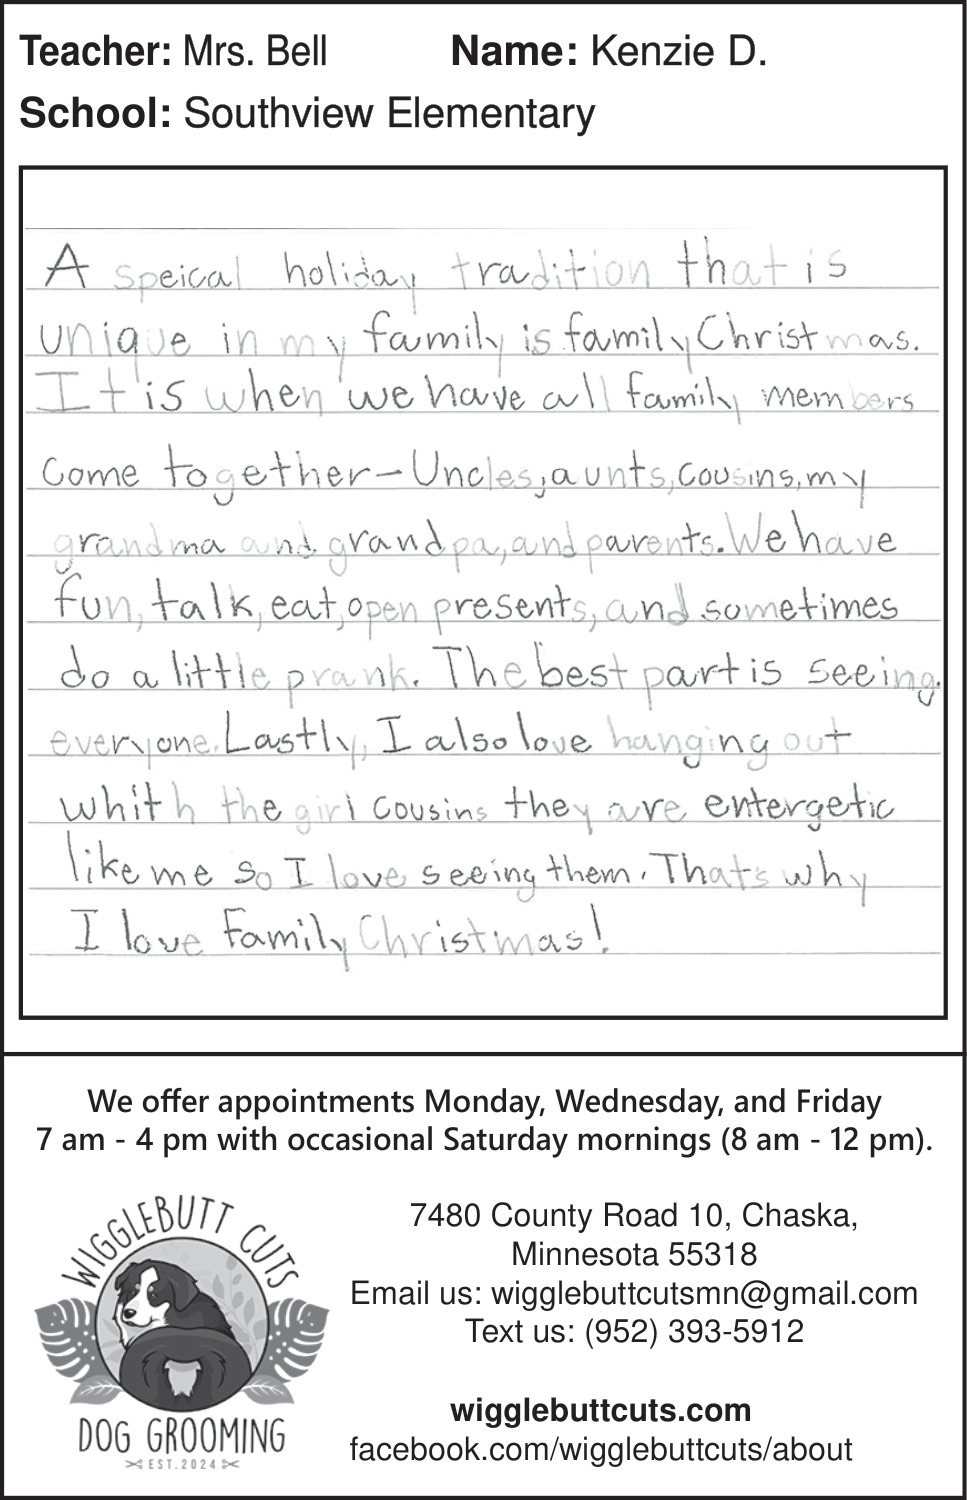 Teacher: Mrs. Bell Name: Kenzie D.
School: Southview Elementary
A speical holiday tradition that is
unique in my family is family Christmas.
It is when we have all family members
come together-Uncles, aunts, cousins, my
grandma and grandpa, and parents. We have
fun, talk, eat, open presents, and sometimes
do a little prank. The best part is seeing.
everyone. Lastly, I also love hanging out
whith the girl cousins they are entergetic
like me so I love seeing them. Thats why
I love Family Christmas!
We offer appointments Monday, Wednesday, and Friday
7 am - 4 pm with occasional Saturday mornings (8 am - 12 pm).
WIGGLEBUTT CUTS
DOG GROOMING
EST. 2024
7480 County Road 10, Chaska,
Minnesota 55318
Email us: wigglebuttcutsmn@gmail.com
Text us: (952) 393-5912
wigglebuttcuts.com
facebook.com/wigglebuttcuts/about